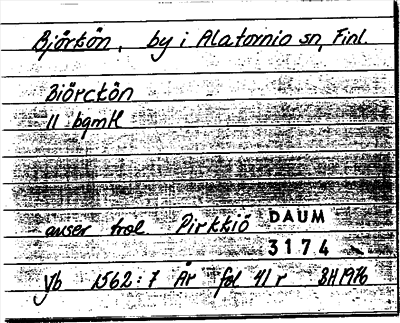 Björkön, by i Alatornio sn, Finl.
Biörckön
11 bgmtl
auser trol Pirkkiö DAUM
3174
yb 1562:7 År fol 41 r SH 1976